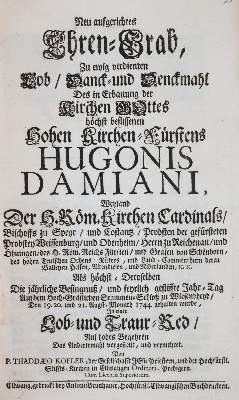 Neu aufgerichtes
Ehren-Grab,
Zu ewig verdienten
Lob / Danck- und Denckmahl
Des in Erbauung der
Kirchen GOttes
höchst beflissenen
Hohen Kirchen-Fürstens
HUGONIS
DAMIANI,
Weyland
Der H. Röm. Kirchen Cardinals /
Bischoffs zu Speyr / und Costantz / Probsten der gefürsteten
Probstey Weissenburg / und Odenheim / Herrn zu Reichenau / und
Öhningen / des H. Röm. Reichs Fürsten / und Grafen von Schönborn,
des hohen Teutschen Ordens-Ritters / und Land-Commentheurn deren
Balleyen Hessen, Altenbiesen / und Niderlanden, rc. rc.
Als höchst-Derselben
Die jährliche Besingnuß / und feyrlich gestiffte Jahr-Tag
Auf dem Hoch-Gräflichen Stammen-Schloß zu Wiesendheyd /
Den 19. 20. und 21. Aug. Monath 1744. erhalten wurde
In einer
Lob- und Traur-Red /
Auf hohes Begehren
Das Andertemahl vorgestellt, und vermehret.
Von
P. THADDÆO KOFLER, der Gesellschafft JEsu Priestern, und der Hochfürstl.
Stiffts-Kirchen in Ellwangen Ordinari-Predigern.
Cum Licentia Superiorum.
Ellwang, gedruckt bey Antoni Brunhauer, Hochfürstl. Ellwangischen Buchdruckern.